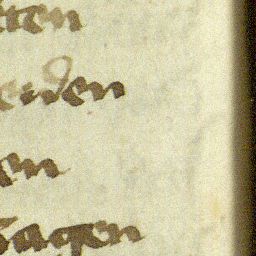 tten
erden
en
sagen